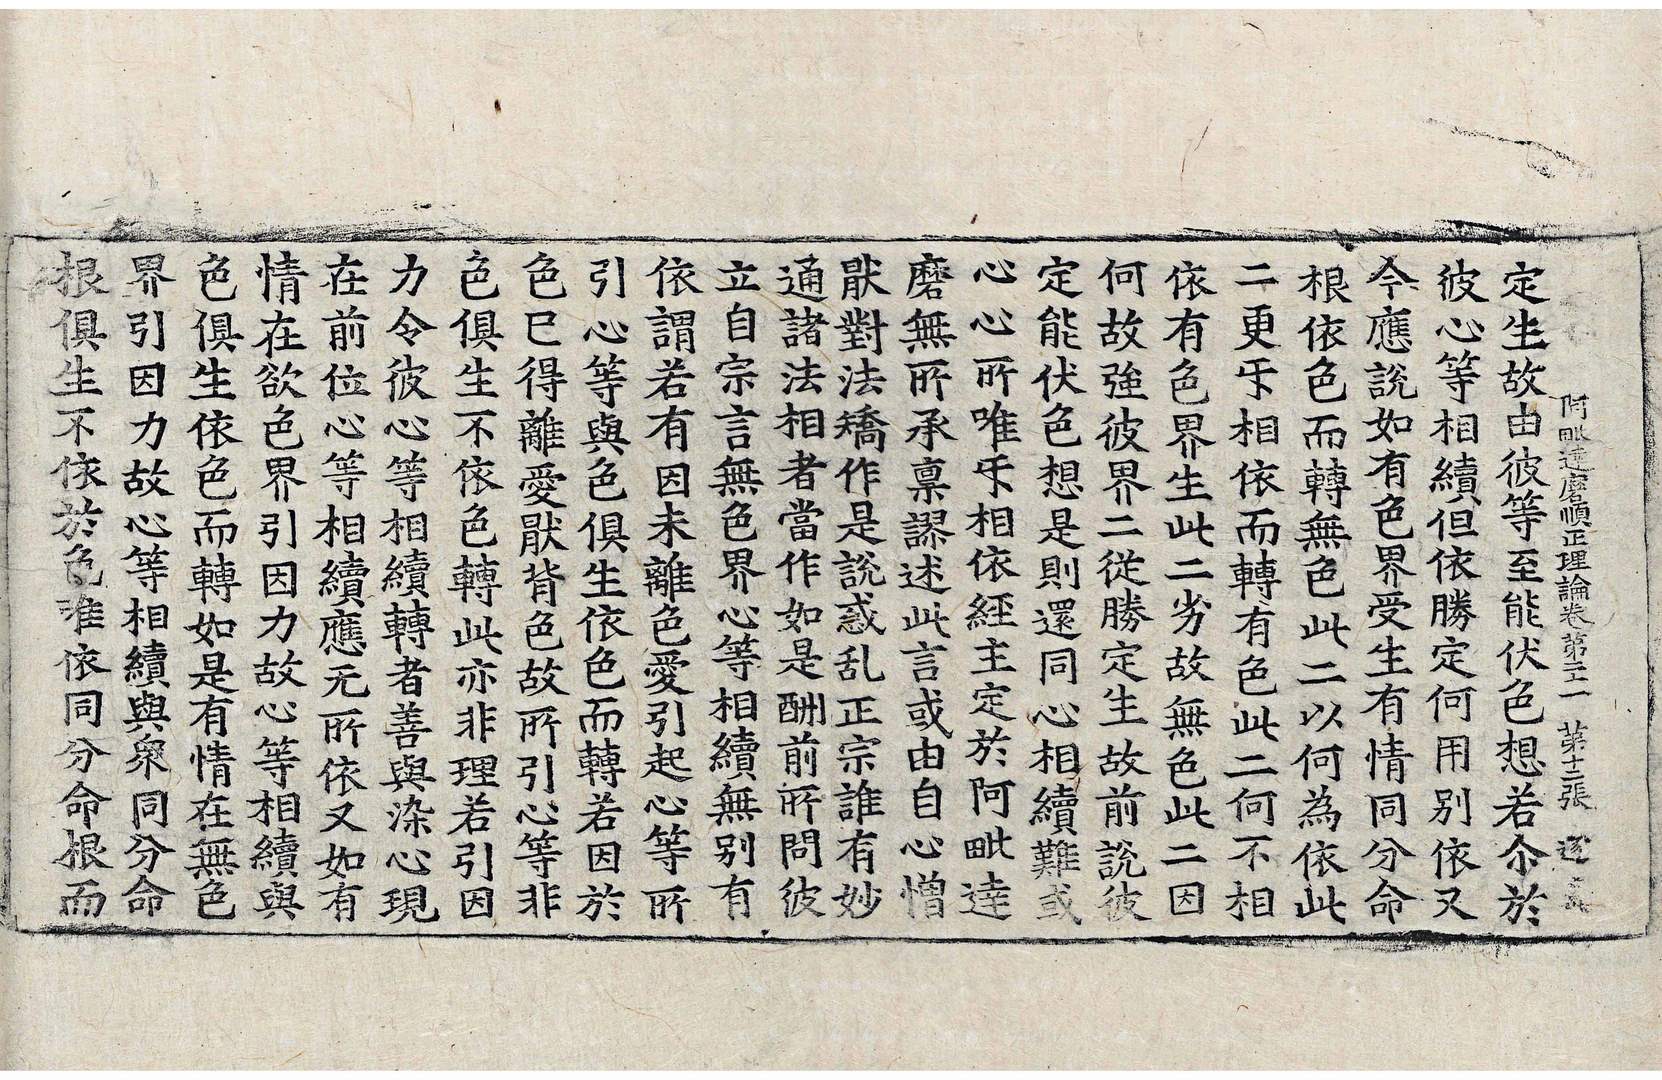 阿毗達磨順正理論卷第二十一　第十二張　逐
定生故由彼等至能伏色想若尒於
彼心等相續但依勝定何用別依又
今應說如有色界受生有情同分命
根依色而轉無色此二以何為依此
二更㸦相依而轉有色此二何不相
依有色界生此二劣故無色此二因
何故強彼界二從勝定生故前說彼
定能伏色想是則還同心相續難或
心心所唯㸦相依經主定於阿毗達
磨無所承稟謬述此言或由自心憎
猒對法矯作是說惑乱正宗誰有妙
通諸法相者當作如是酬前所問彼
立自宗言無色界心等相續無別有
依謂若有因未離色愛引起心等所
引心等與色俱生依色而轉若因於
色已得離愛猒背色故所引心等非
色俱生不依色轉此亦非理若引因
力令彼心等相續轉者善與染心現
在前位心等相續應无所依又如有
情在欲色界引因力故心等相續與
色俱生依色而轉如是有情在無色
界引因力故心等相續與眾同分命
根俱生不依於色唯依同分命根而